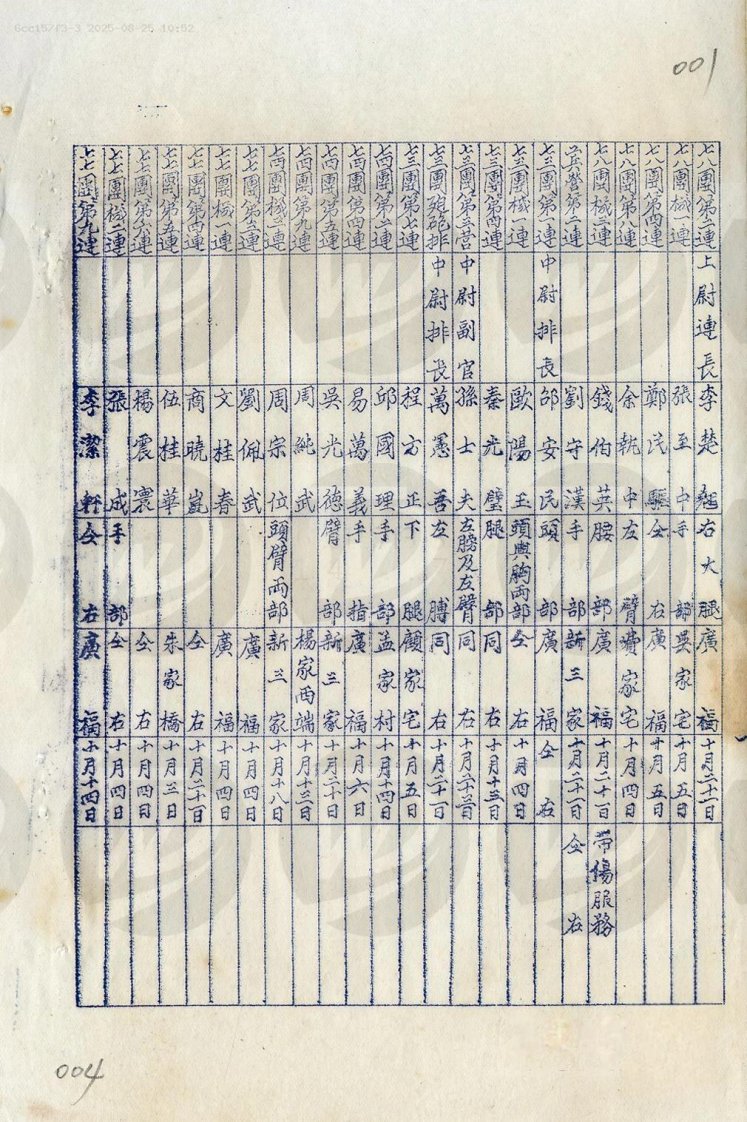 6cc157f3-3 2025-08-25 10:52
001
七八團第二連 上尉連長 李楚 右大腿 廣福 十月二十一日
七八團機一連 張至中 手部 吳家宅 十月五日
七八團第四連 鄭民驅 仝右 廣福 十月五日
七八團第一連 余執中 左臂 費家宅 十月四日
七八團機二連 錢伯英 腰部 廣福 十月二十一日 帶傷服務
工兵營第二連 劉守漢 手部 新三家 十月二十一日 仝右
七三團第一連 中尉排長 邵安民 頭部 廣福 仝右
七三團機一連 歐陽玉 頭與胸兩部 仝右 十月四日
七三團第四連 秦光璧 腿部 同右 十月十五日
七三團第三營 中尉副官 孫士夫 左膀及左臂 同右 十月二十三日
七三團迫砲排 中尉排長 萬憲吾 左膊 同右 十月二十一日
七三團第七連 程方正 下腿 顧家宅 十月五日
七四團第二連 邱國理 手部 孟家村 十月十四日
七四團第四連 易萬義 手指 廣福 十月六日
七四團第五連 吳光德 臂部 新三家 十月二十日
七四團第九連 周純武 楊家西端 十月十三日
七四團機三連 周宗位 頭臂兩部 新三家 十月十八日
七七團第三連 劉佩武 廣福 十月四日
七七團機一連 文桂春 廣福 十月四日
七七團第四連 商曉嵐 仝右 十月二十一日
七七團第五連 伍桂華 朱家橋 十月三日
七七團第六連 楊震寰 仝右 十月四日
七七團機二連 張成 手部 仝右 十月四日
七七團第九連 李潔軒 仝右 廣福 十月十四日
004